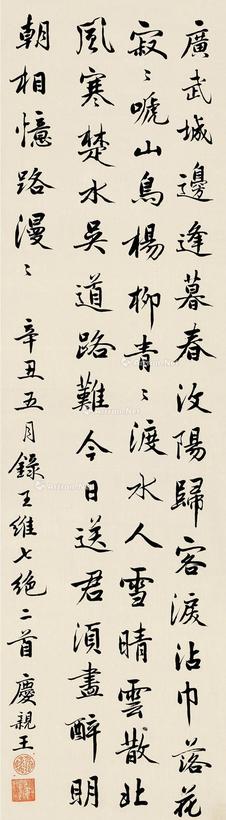 廣武城邊逢暮春汶陽歸客淚沾巾落花
寂〻嗁山鳥楊柳青〻渡水人雪晴雲散北
風寒楚水吳道路難今日送君須盡醉明
朝相憶路漫〻
辛丑五月錄王維七絕二首 慶親王